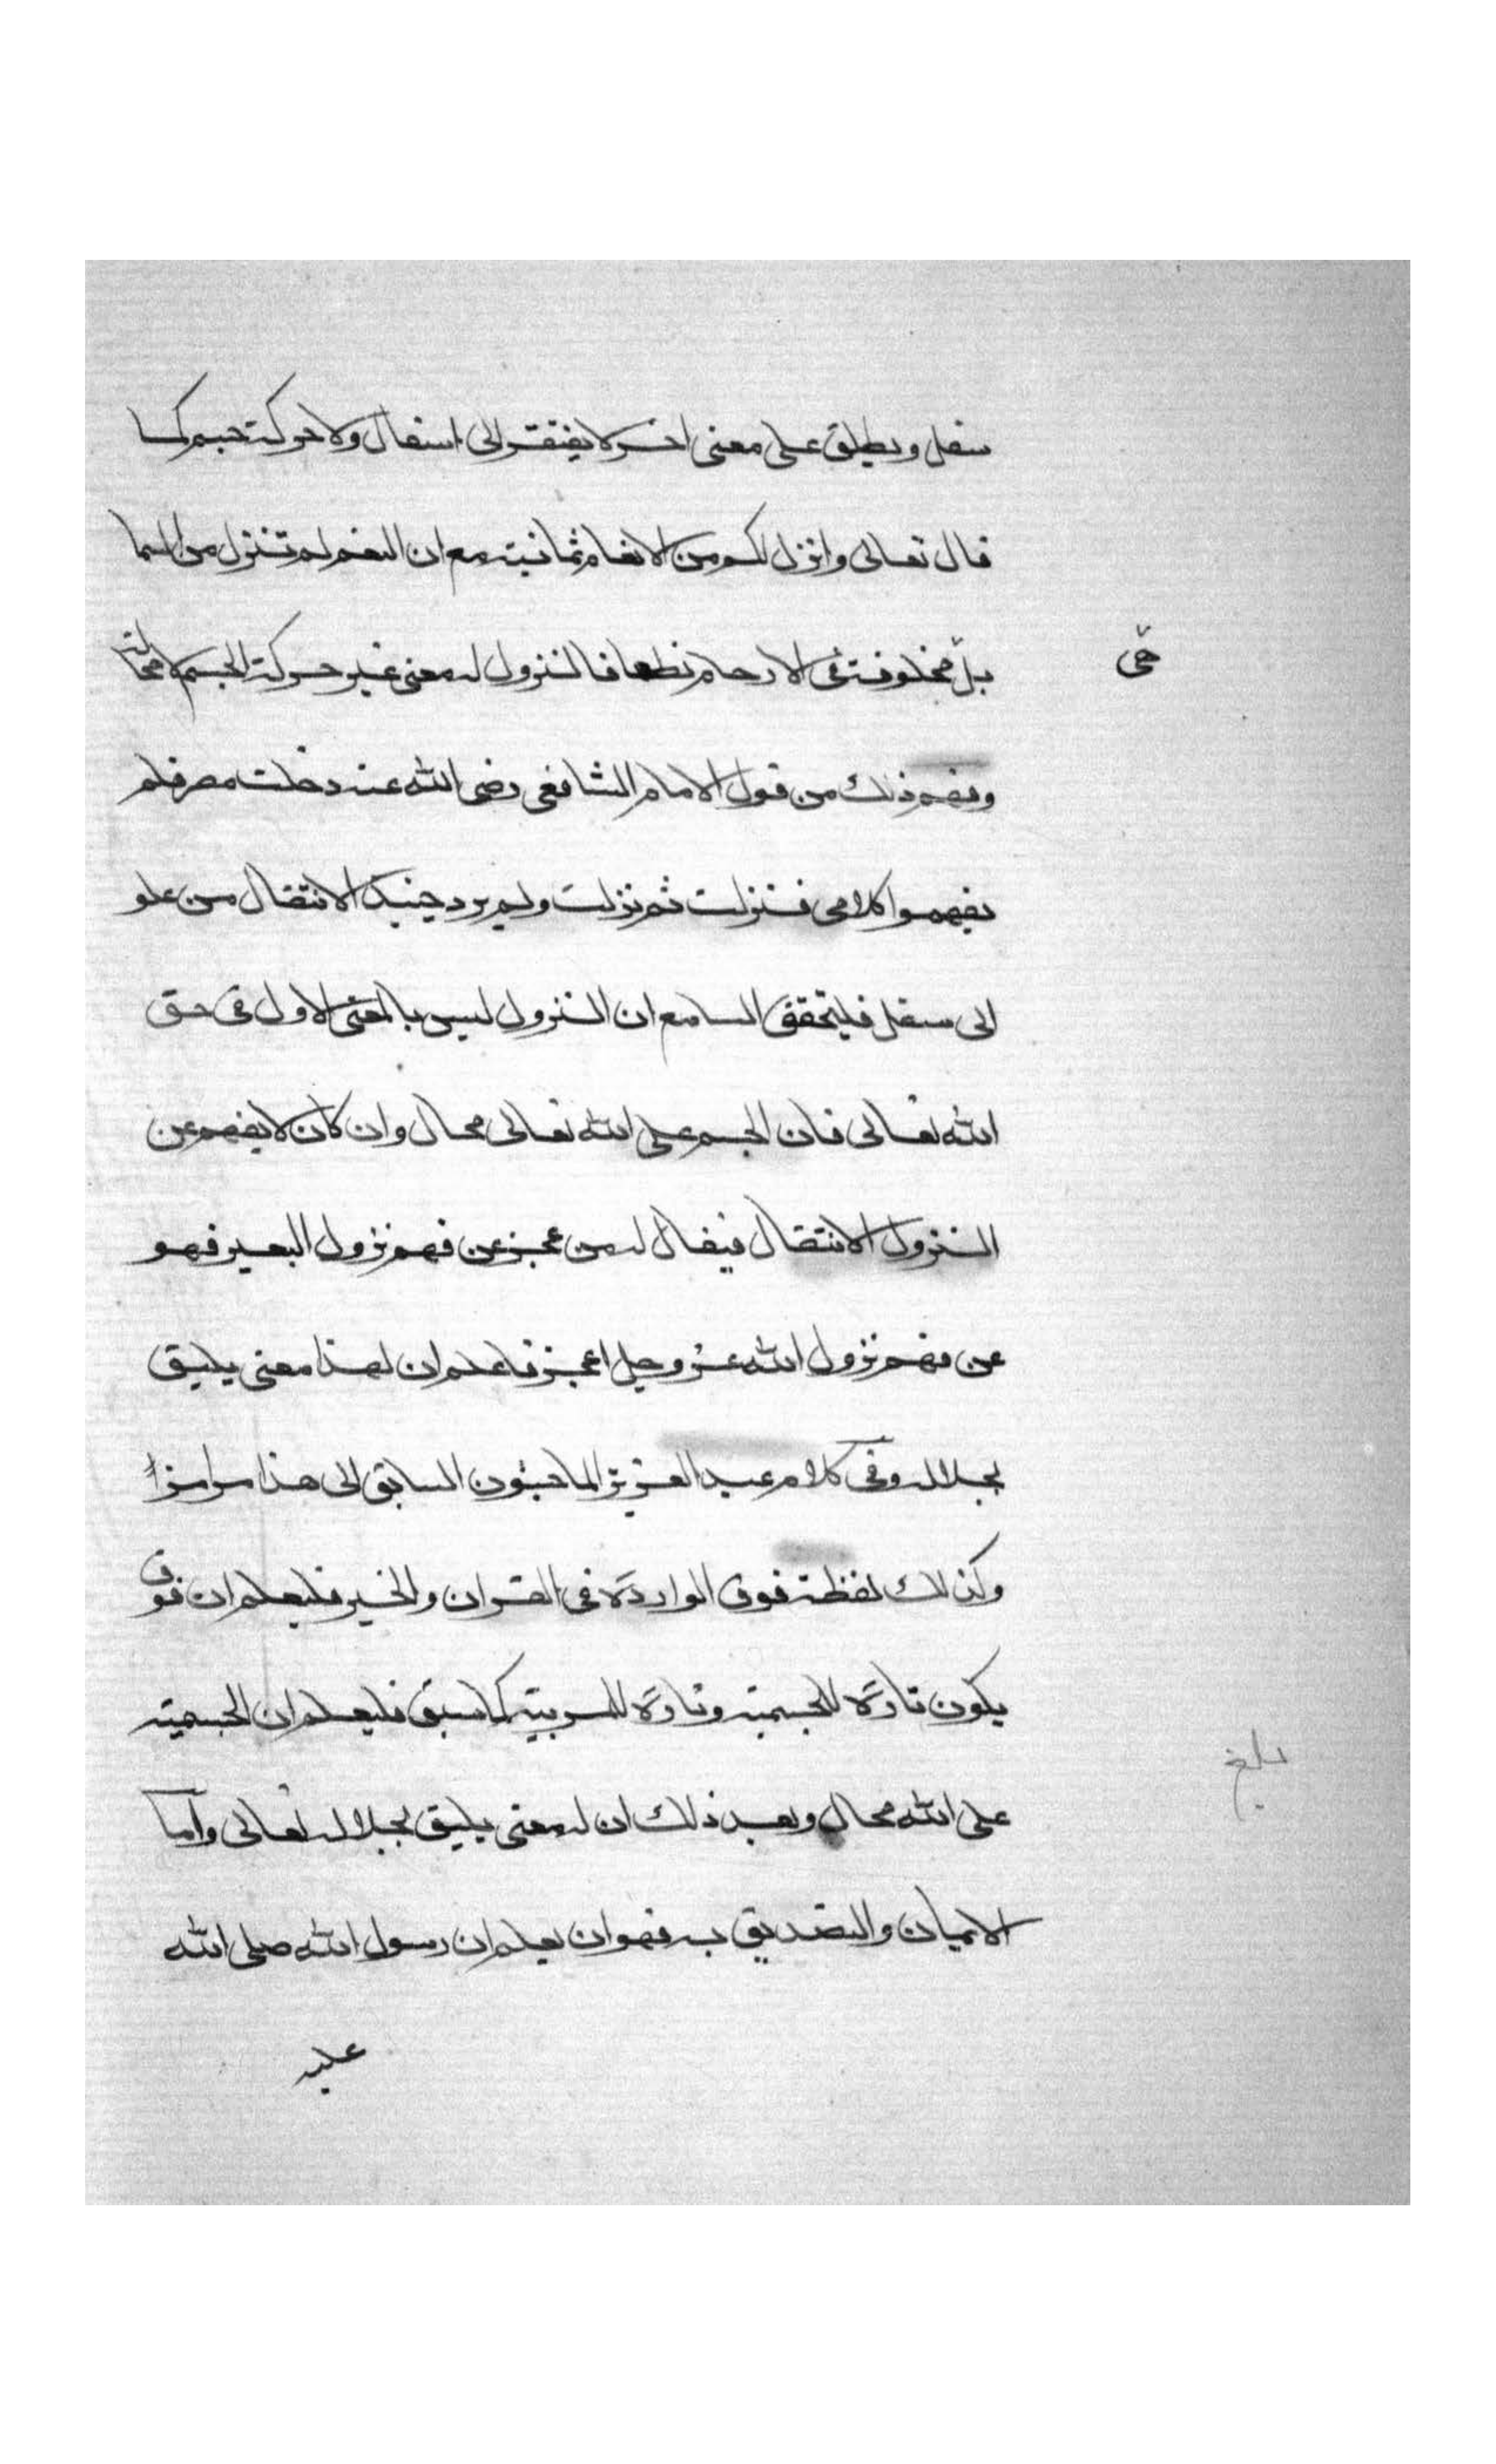 سفل ويطلق على معنى اخر لا يفتقر الى انتقال ولا حركة جسم كما
قال تعالى وانزل لكم من الانعام ثمانية مع ان النعم لم تنزل من السما
بل مخلوقة في الارحام قطعا فالنزول له معنى غير حركة الجسم لا محالة
هي
وفهم ذلك من قول الامام الشافعي رضى الله عنه دخلت مصر فلم
يفهموا كلامي فنزلت ثم نزلت ولم يرد حينيذ الانتقال من علو
الى سفل فليتحقق السامع ان النزول ليس بالمعنى الاول في حق
الله تعالى فان الجسم على الله تعالى محال وان كان لا يفهم عن
النزول الانتقال فيقال له من عجز عن فهم نزول البعير فهو
عن فهم نزول الله عز وجل اعجز فاعلم ان لهذا معنى يليق
بجلاله وفي كلام عبد العزيز الماجشون السابق الى هذا مرامزا
وكذلك لفظة فوق الواردة في القران والخبر فليعلم ان فوق
يكون تارة للجسمية وتارة للمرتبة كما سبق فليعلم ان الجسمية
بلغ
على الله محال وبعد ذلك ان له معنى يليق بجلاله تعالى واما
الايمان والتصديق به فهو ان يعلم ان رسول الله صلى الله
عليه